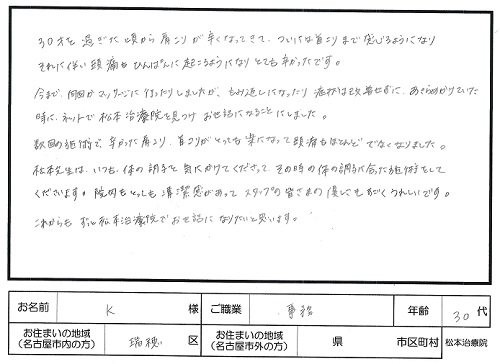 30才を過ぎた頃から肩こりが辛くなってきて、ついには首こりまで感じるようになり
それに伴い頭痛もひんぱんに起こるようになりとても辛かったです。
今まで、何回かマッサージに行ったりしましたが、もみ返しになったり症状は改善せずに、あきらめかけていた
時に、ネットで松本治療院を見つけお世話になることにしました。
数回の施術で、辛かった肩こり、首こりがとっても楽になって頭痛もほとんどでなくなりました。
松本先生は、いつも、体の調子を気にかけてくださって、その時の体の調子に合った施術をして
くださいます。院内もとっても清潔感があってスタッフの皆さまの優しさもすごくうれしいです。
これからもずっと松本治療院でお世話になりたいと思います。
お名前 K 様 ご職業 事務 年齢 30代
お住まいの地域(名古屋市内の方) 瑞穂 区 お住まいの地域(名古屋市外の方) 県 市区町村 松本治療院